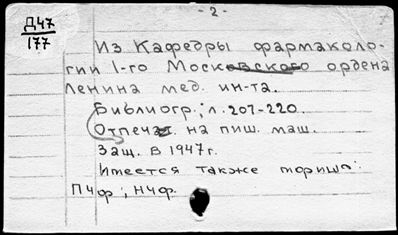 Д47
177
- 2 -
Из Кафедры фармаколо-
гии 1-го Московского ордена
Ленина мед. ин-та.
Библиогр.; л. 207-220.
Отпечат. на пиш. маш.
Защ. в 1947г.
Имеется также
ПЧф; НЧф.